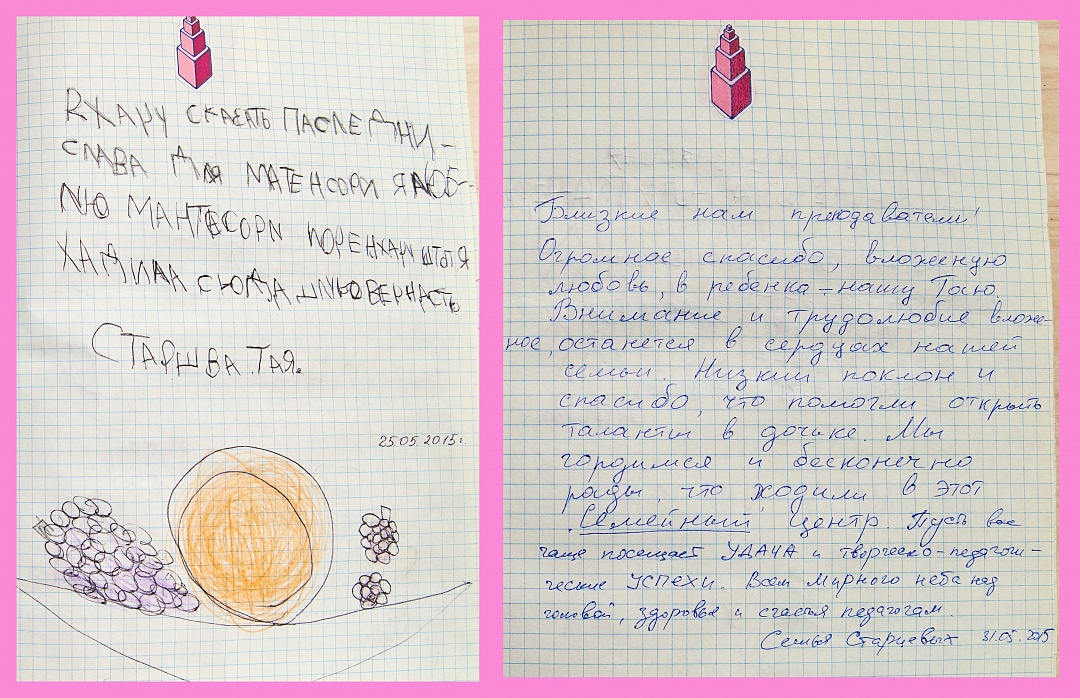 Я ХАЧУ СКАСАТЬ ПАСЛЕДНИ-
СЛАВА ДЛЯ МАТЕНСОРИ Я ЛЮБ-
ЛЮ МАНТЕСОРИ
ХАДИЛА СЬЮДА
СТАРЦЕВА. ТАЯ.
25.05.2015г.
Близкие нам преподаватели!
Огромное спасибо, вложеную
любовь, в ребенка - нашу Таю.
Внимание и трудолюбие вложе-
ное, останется в сердцах нашей
семьи. Низкий поклон и
спасибо, что помогли открыть
таланты в дочьке. Мы
гордимся и бесконечно
рады, что ходили в этот
Семейный Центр. Пусть вас
чаще посещает УДАЧА и творческо-педагоги-
ческие УСПЕХИ. Всем Мирного неба над
головой, здоровье и счастья педагогам.
Семья Старцевых 31.05.2015